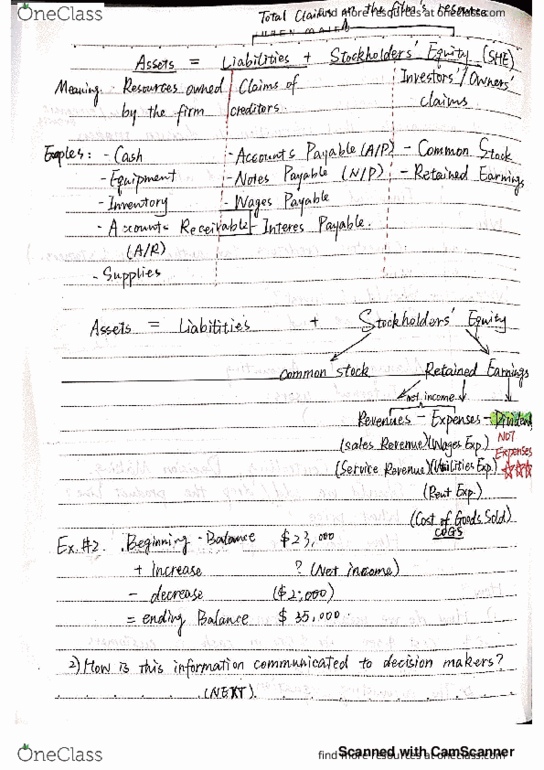 Total Claims on the film's resource
find more resources at oneclass.com
Assets = Liabilities + Stockholders' Equity (SHE)
Meaning: Resources owned by the firm
Claims of creditors.
Investors'/Owners' claims
Exples: - Cash - Accounts Payable (A/P) - Common Stock
- Equipment - Notes Payable (N/P) - Retained Earnings
- Inventory - Wages Payable
- Accounts Receivable - Interes Payable.
(A/R)
- Supplies
Assets = Liabilities + Stockholders' Equity
common stock Retained Earnings
net income
Revenues - Expenses - Dividend
(Sales Revenue) (Wages Exp.) NOT Expenses
(Service Revenue) (Utilities Exp.)
(Rent Exp.)
(Cost of Goods Sold)
COGS
Ex.#2. Beginning Balance $23,000
+ Increase ? (Net income)
- decrease ($2,000)
= ending Balance $ 35,000.
2) How is this information communicated to decision makers?
(NEXT).
OneClass
find more resources at oneclass.com
Scanned with CamScanner
OneClass